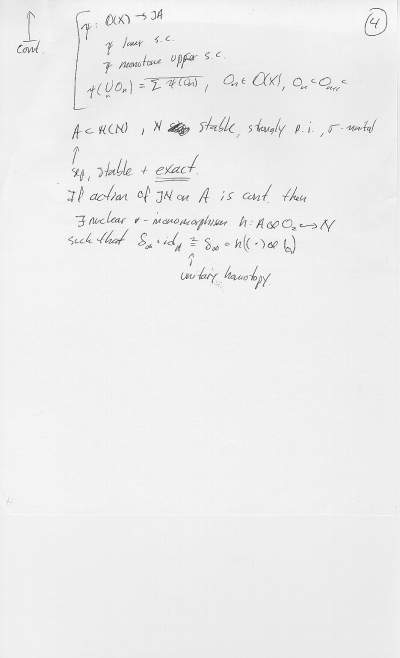 ④
Cont. ψ: O(X) → JA
ψ lower s.c.
ψ monotone upper s.c.
ψ(⋃ₙ Oₙ) = \overline{Σ ψ(Oₙ)}, Oₙ ∈ O(X), Oₙ ⊂ Oₙ₊₁ ⊂
A ⊂ M(N), N stable, strongly p.i., σ-unital
↑
sep, stable + exact.
If action of JN on A is cont. then
∃ nuclear *-monomorphism h: A ⊗ O₂ ↪ N
such that δ∞ ∘ id_A ≅ δ∞ ∘ h((·) ⊗ 1)
↑
unitary homotopy